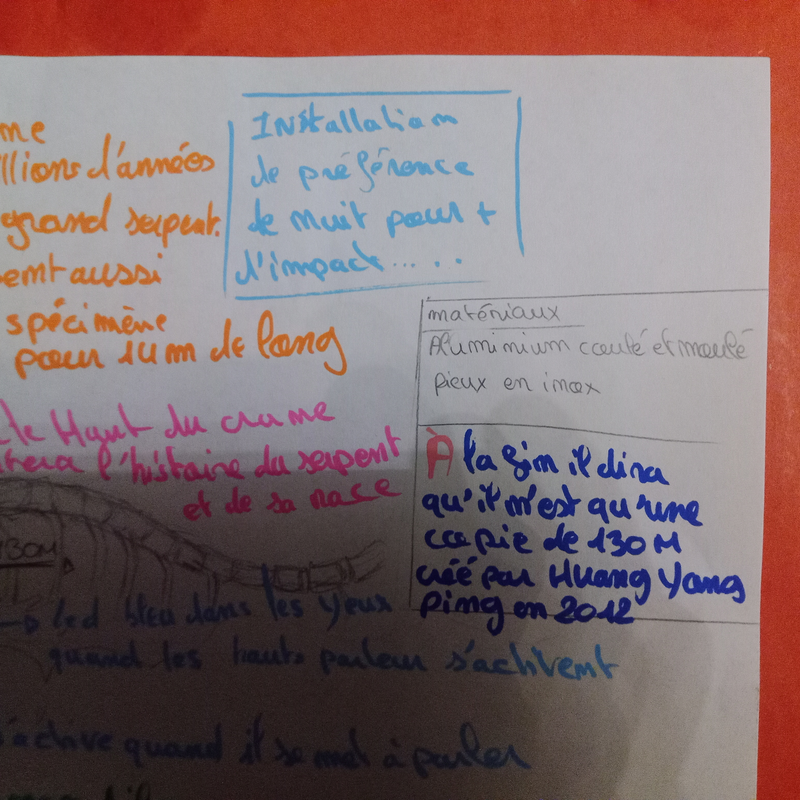 me
llions d'années
grand serpent.
sent aussi
spécimène
pour 14m de long
Installation
de préférence
de nuit pour +
d'impact.....
matériaux
Aluminium coulé et moulé
pieux en inox
le Haut du crane
l'histoire du serpent
et de sa race
À la fin il dira
qu'il n'est qu'une
copie de 130 M
créé par Huang Yong
Ping en 2012
130M
→ led bleu dans les yeux
quand les hauts parleur s'activent
s'active quand il se met à parler